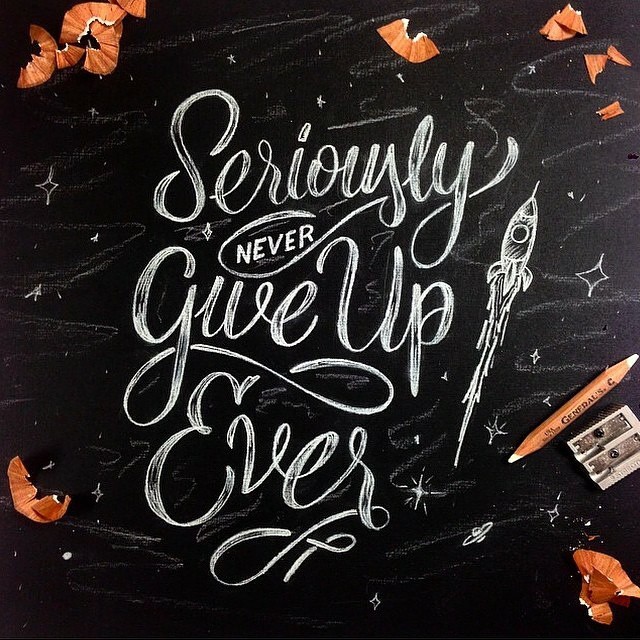 Seriously
NEVER
Give Up
Ever
GENERAL'S